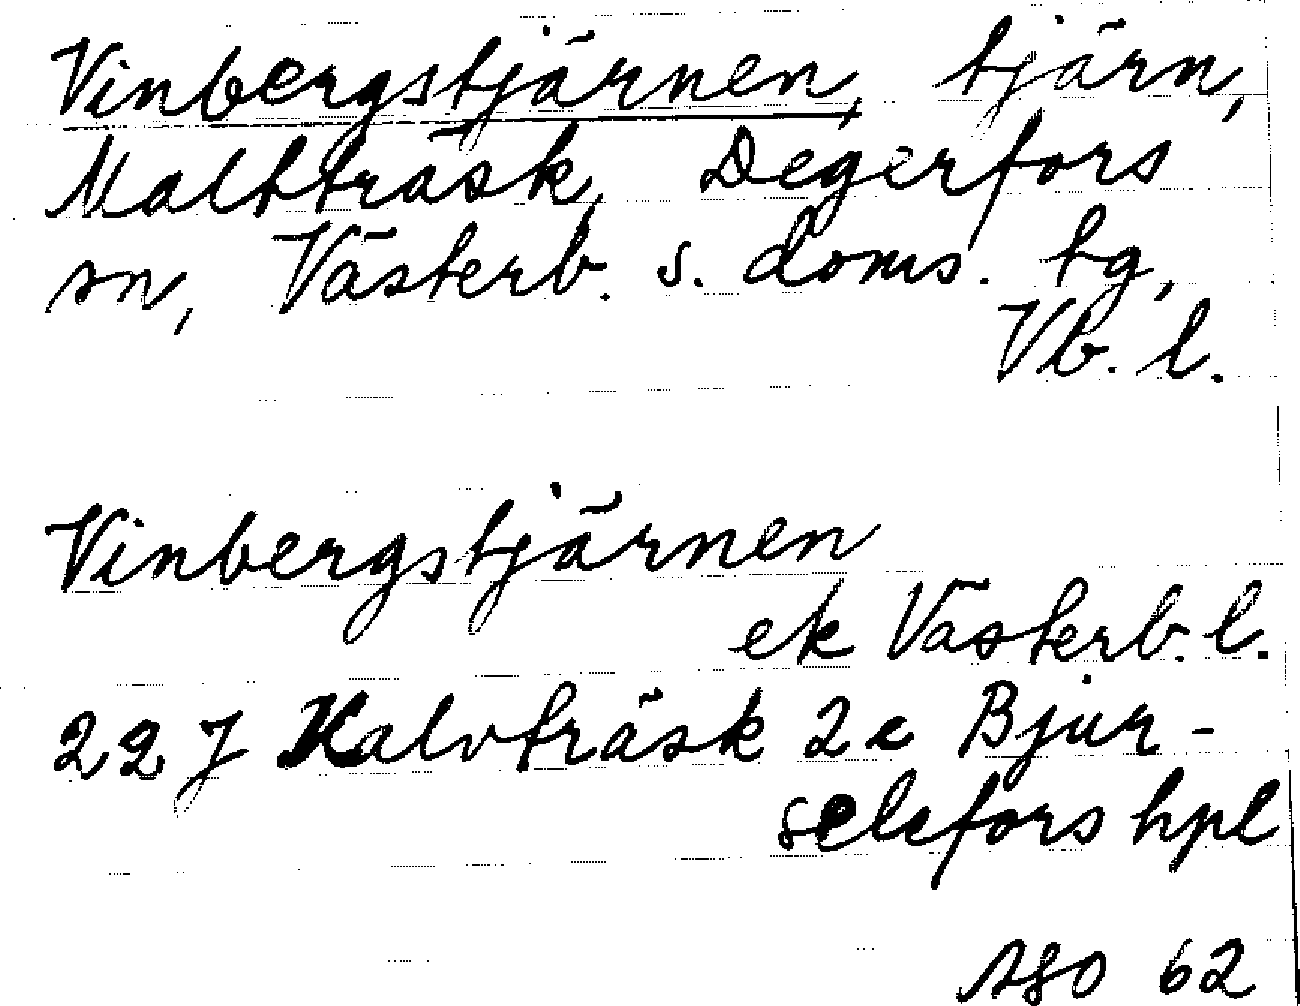 Vinbergstjärnen, tjärn,
Malbträsk, Degerfors
sn, Västerb. s. doms. tg,
Vb. l.
Vinbergstjärnen
ek Västerb. l.
22 J Kalvträsk 2c Bjur-
selefors hpl
ASO 62